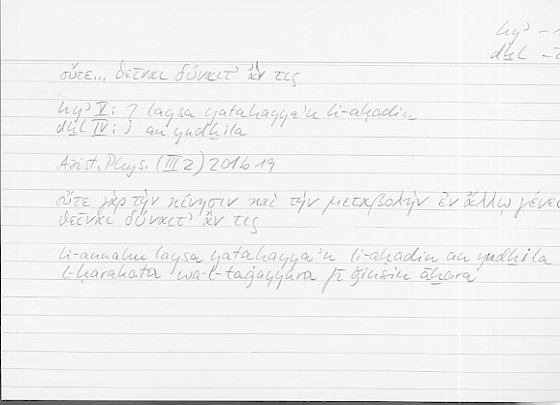 hyʾ –1
dḫl –2
οὔτε... θεῖναι δύναιτ’ ἄν τις
hyʾ V: ] laysa yatahayyaʾu li-aḥadin
dḫl IV: ] an yudḫila
Arist. Phys. (III 2) 201b 19
οὔτε γὰρ τὴν κίνησιν καὶ τὴν μεταβολὴν ἐν ἄλλῳ γένει
θεῖναι δύναιτ’ ἄν τις
li-annahu laysa yatahayyaʾu li-aḥadin an yudḫila
l-ḥarakata wa-l-taġayyura fī ǧinsin āḫara